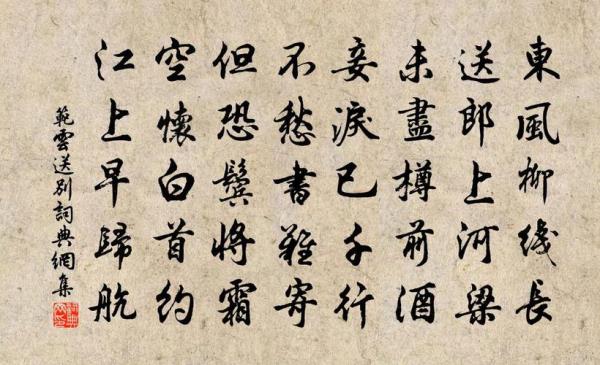 東風柳线長
送郎上河梁
未盡樽前酒
妾淚已千行
不愁書難寄
但恐鬓將霜
空懷白首約
江上早歸航
範雲送别詞典網集